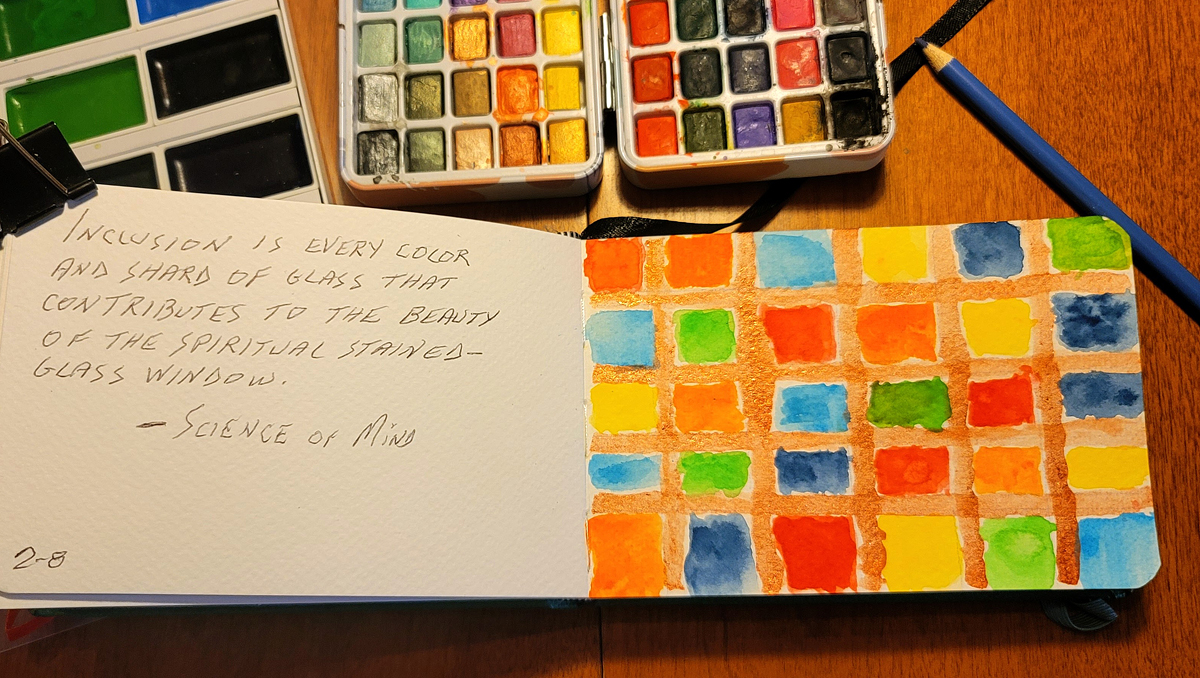 INCLUSION IS EVERY COLOR
AND SHARD OF GLASS THAT
CONTRIBUTES TO THE BEAUTY
OF THE SPIRITUAL STAINED-
GLASS WINDOW.
- SCIENCE OF MIND
2-8